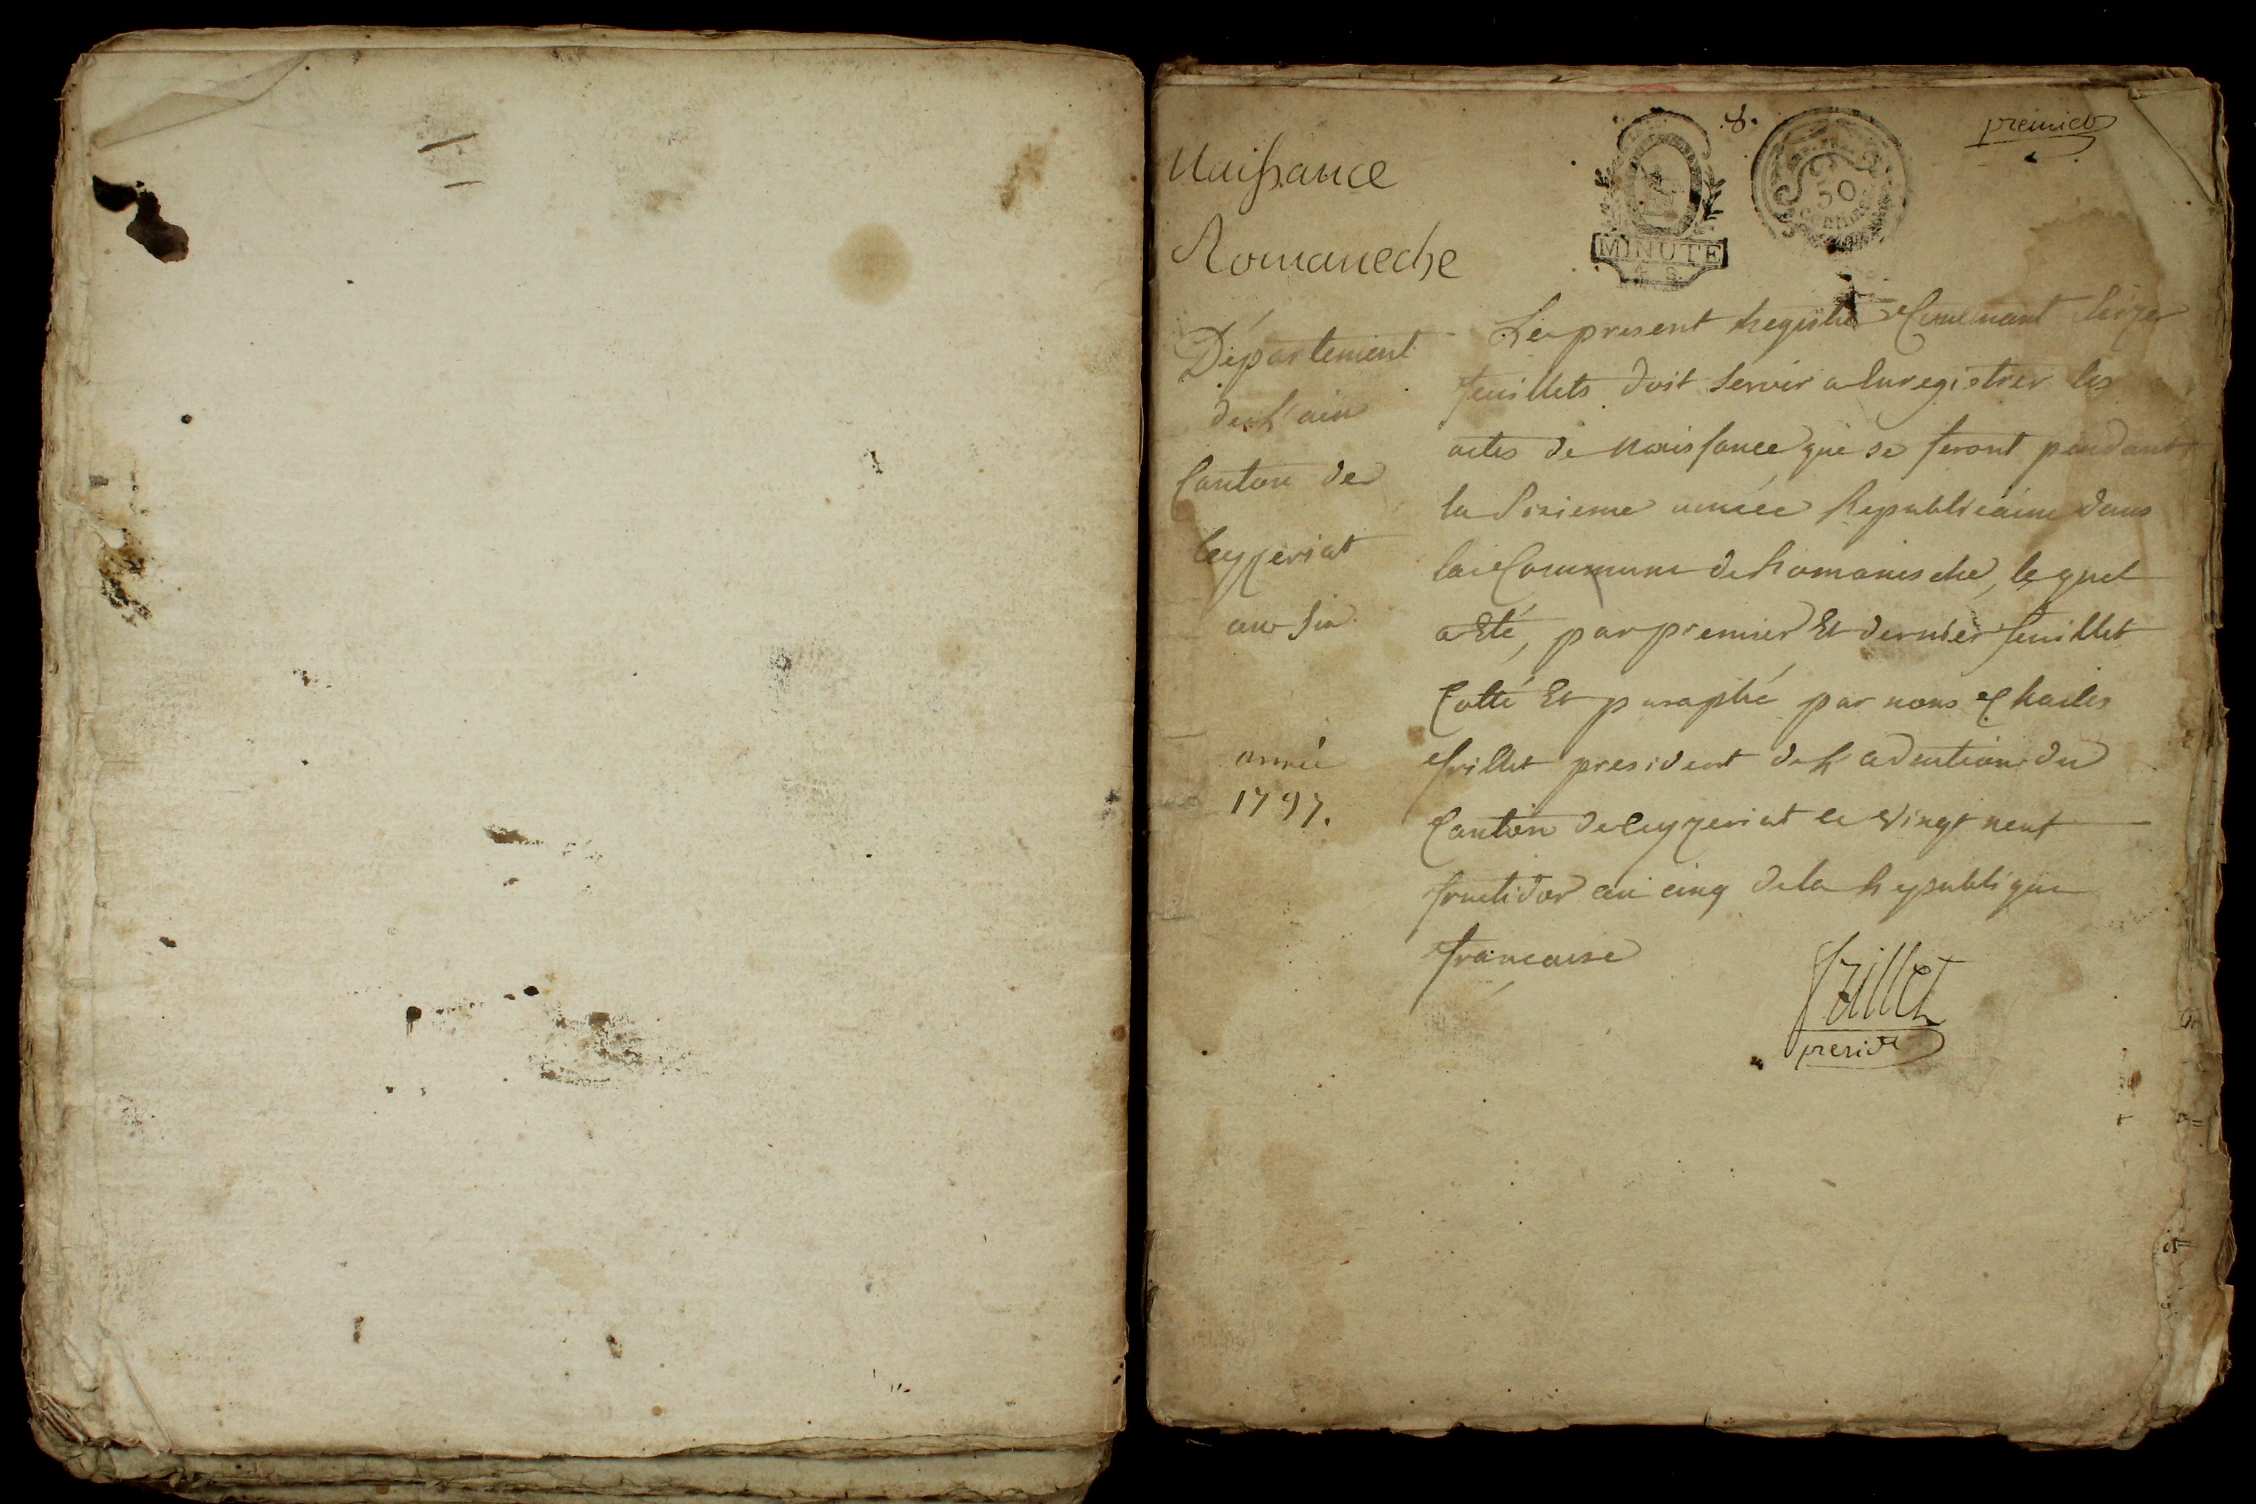 premier
Naissance
Romaneche
MINUTE
50
centimes
Département
de L'ain
Canton de
Ceyzeriat
an Six
année
1797.
Le present Registre Contenant Seize
feuillets doit Servir a Enregistrer les
actes de Naissance qui se feront pendant
la Sixieme année Republicaine dans
la Commune de Romanesche, le quel
a Eté, par premier Et dernier feuillet
Cotté Et paraphé par nous Charles
frillet president de L'admtion du
Canton de Ceyzeriat le Vingt neuf
fructidor an cinq de la Republique
francaise
frillet
presidt